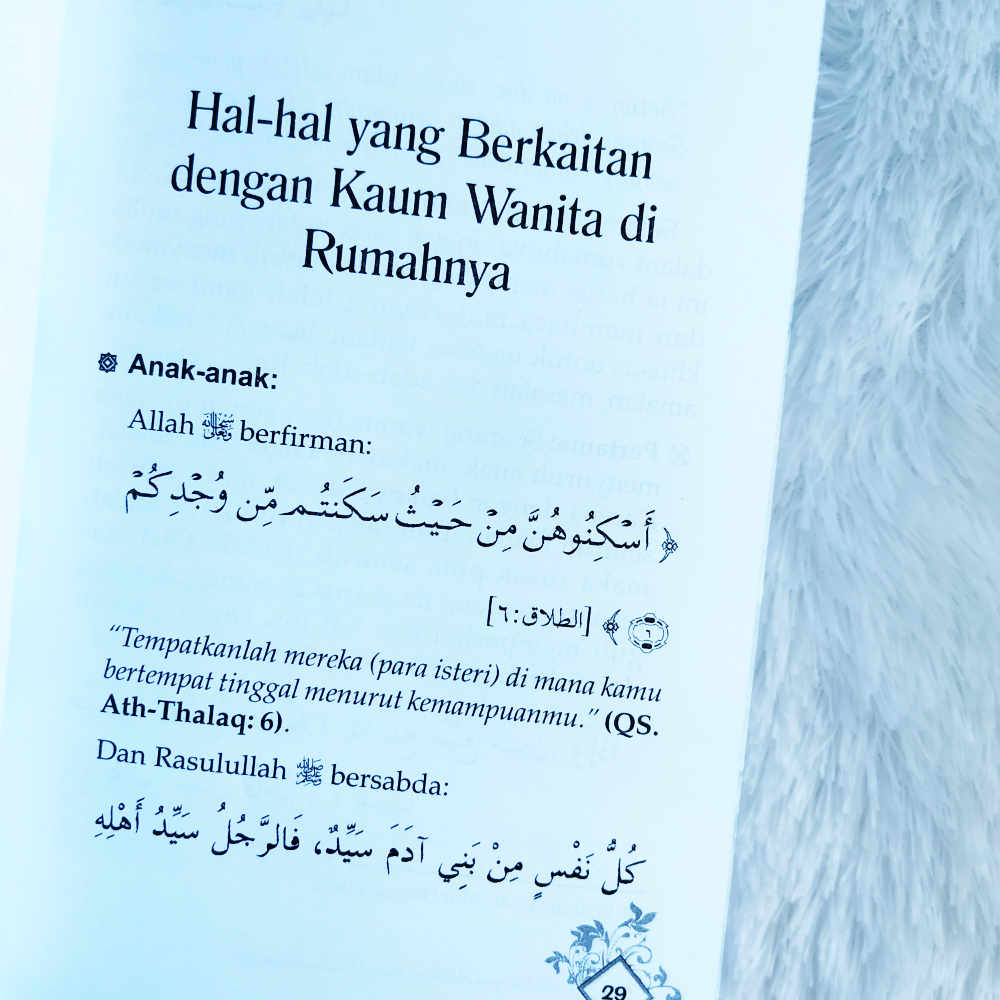 Hal-hal yang Berkaitan
dengan Kaum Wanita di
Rumahnya
Anak-anak:
Allah ﷾ berfirman:
﴿ أَسْكِنُوهُنَّ مِنْ حَيْثُ سَكَنتُم مِّن وُجْدِكُمْ
٦ ﴾ [الطلاق: ٦]
“Tempatkanlah mereka (para isteri) di mana kamu
bertempat tinggal menurut kemampuanmu.” (QS.
Ath-Thalaq: 6).
Dan Rasulullah ﷺ bersabda:
كُلُّ نَفْسٍ مِنْ بَنِي آدَمَ سَيِّدٌ، فَالرَّجُلُ سَيِّدُ أَهْلِهِ
29